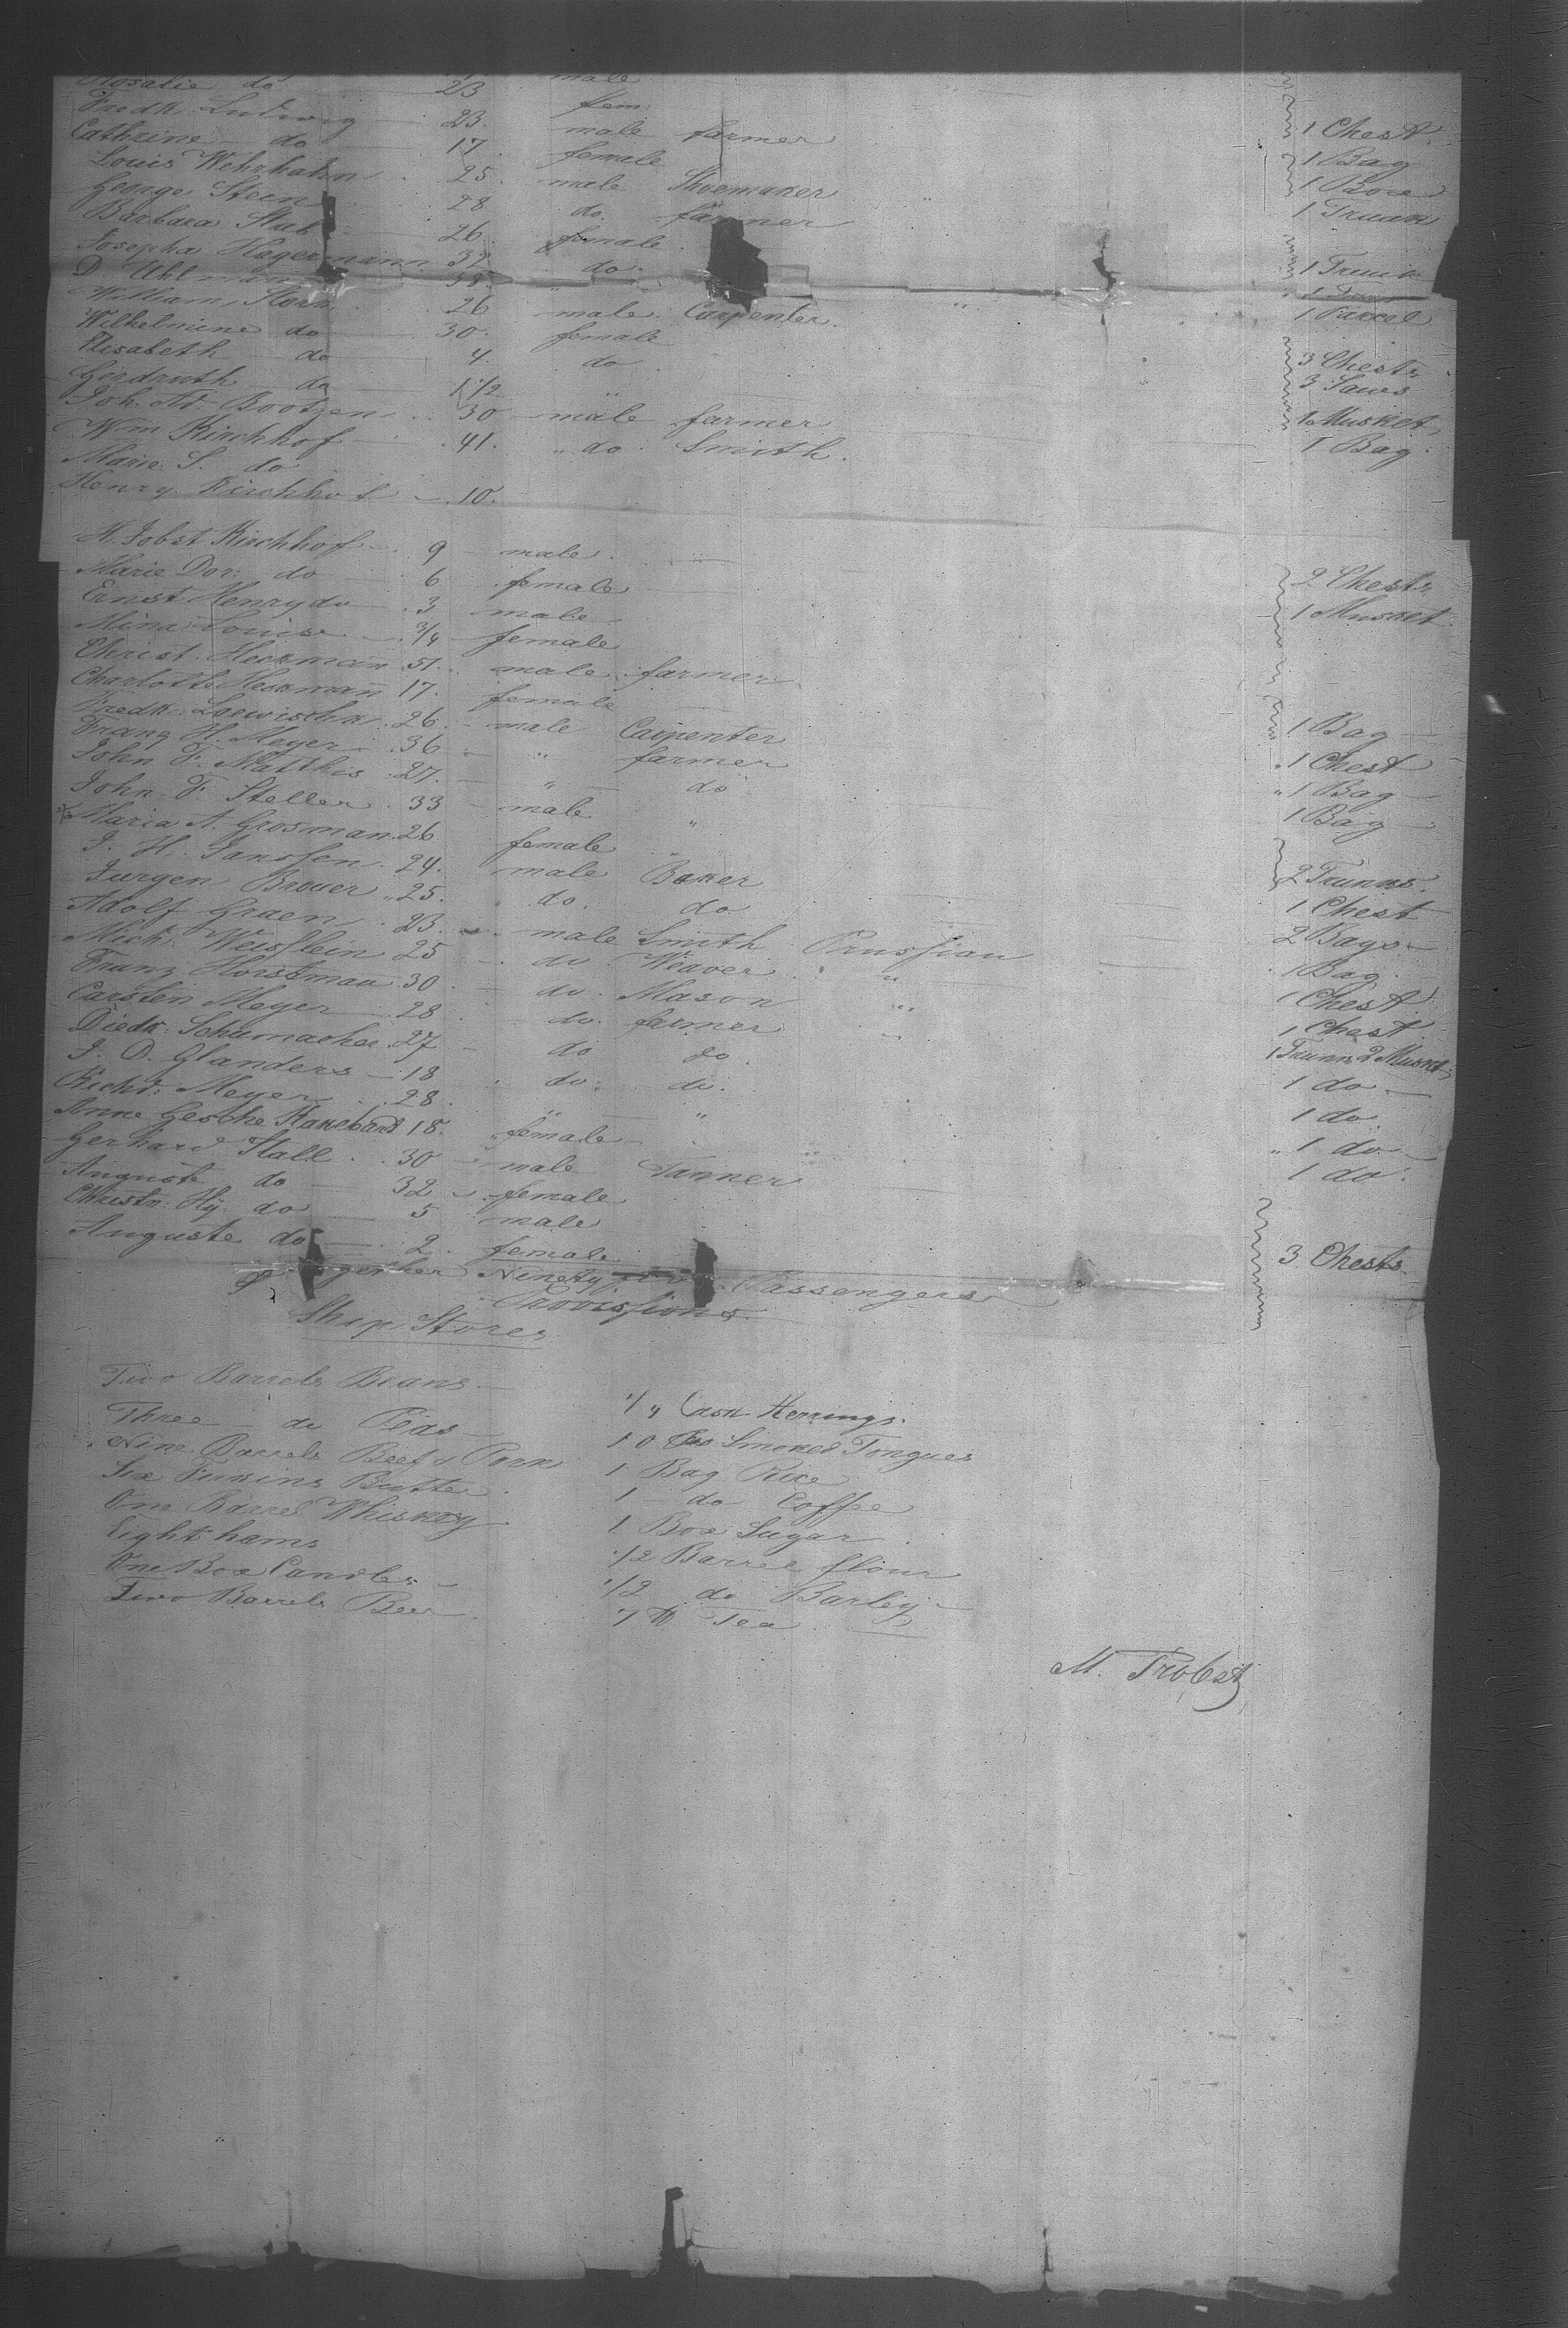 Rosalie do 23 fem.
Fredk. Ludwig 23. male farmer 1 Chest
Cathrine do 17 female 1 Bag
Louis Wehrhahn 25 male Shoemaker 1 Box
George Stein 28 do. farmer 1 Trunk
Barbara 26 female
Josepha Hagermann 37 do. 1 Trunk
D. Uhlmann 38
William Horn 26 male Carpenter. 1 Parcel
Wilhelmine do 30. female
Elisabeth do 4. do 3 Chests
Gerdruth do 1 1/2 3 Saws
Joh. Ad. Bootzen 30 male farmer 1 Musket
Wm Kirchhof 41. " do. Smith. 1 Bag.
Marie S. do
Henry Kirchhof 10.
H. Jobst Kirchhof 9 male.
Marie Dor. do 6 female 2 Chests
Ernst Henry do 3 male 1 Musket
Mina Louise 3/4 female
Christ. Heckmann 51. male farmer
Charlotte Heckmann 17. female
Fredk. Loewischk 26. male Carpenter 1 Bag
Franz H. Meyer 36 " farmer 1 Chest
John F. Matthis 27. " do 1 Bag
John F. Steller 33 male " 1 Bag
Maria A. Grosman. 26 female
J. H. Janssen. 24. male Baker 2 Trunks.
Jurgen Brouer 25. do. do 1 Chest
Adolf Graen 23. male Smith Prussian 2 Bags
Mich. Weisslein 25 do. Weaver " 1 Bag.
Franz Horstman 30. do. Mason " 1 Chest.
Carsten Meyer 28 do. farmer " 1 Chest
Diedk. Schumacher. 27 do do 1 Trunk 2 Musket
J. D. Glanders 18 do. do. 1 do
Richd. Meyer 28. " " 1 do.
Anne Gesche Kakebard 18. female 1 do
Gerhard Stall. 30 male Tanner 1 do.
Auguste do 32 female
Christn. Hy. do 5 male
Auguste do 2. female 3 Chests
Ninety Passengers
Provissions.
Ship Stores
Two Barrels Beans. 1/4 Cask Herrings.
Three do Peas 10 Smoked Tongues
Nine Barrels Beef & Pork 1 Bag Rice
Six Firkins Butter. 1 do Coffee
One Barrel Whiskey 1 Box Sugar
Eight hams 1/2 Barrel flour
One Box Candles 1/2 do Barley
Two Barrels Beer Tea
M. Probst